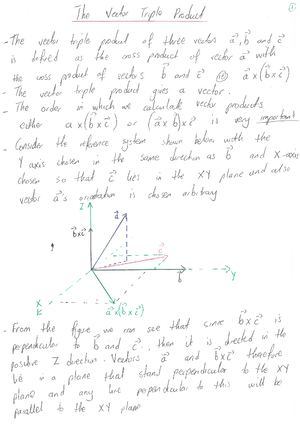 The Vector Triple Product
①
- The vector triple product of three vectors a⃗, b⃗ and c⃗
is defined as the cross product of vector a⃗ with
the cross product of vectors b⃗ and c⃗ (ie) a⃗ x (b⃗ x c⃗)
- The vector triple product gives a vector.
- The order in which we calculate vector products
either a x (b⃗ x c⃗) or (a⃗ x b⃗) x c⃗ is very important!
- Consider the reference system shown below with the
Y axis chosen in the same direction as b⃗ and X-axis
chosen so that c⃗ lies in the XY plane and also
vector a⃗'s orientation is chosen arbitrary
Z
a⃗
b⃗ x c⃗
c⃗
b⃗
Y
X
a⃗ x (b⃗ x c⃗)
- From the figure we can see that since b⃗ x c⃗ is
perpendicular to b⃗ and c⃗, then it is directed in the
positive Z direction. Vectors a⃗ and b⃗ x c⃗ therefore
lie in a plane that stand perpendicular to the XY
plane and any line perpendicular to this will be
parallel to the XY plane